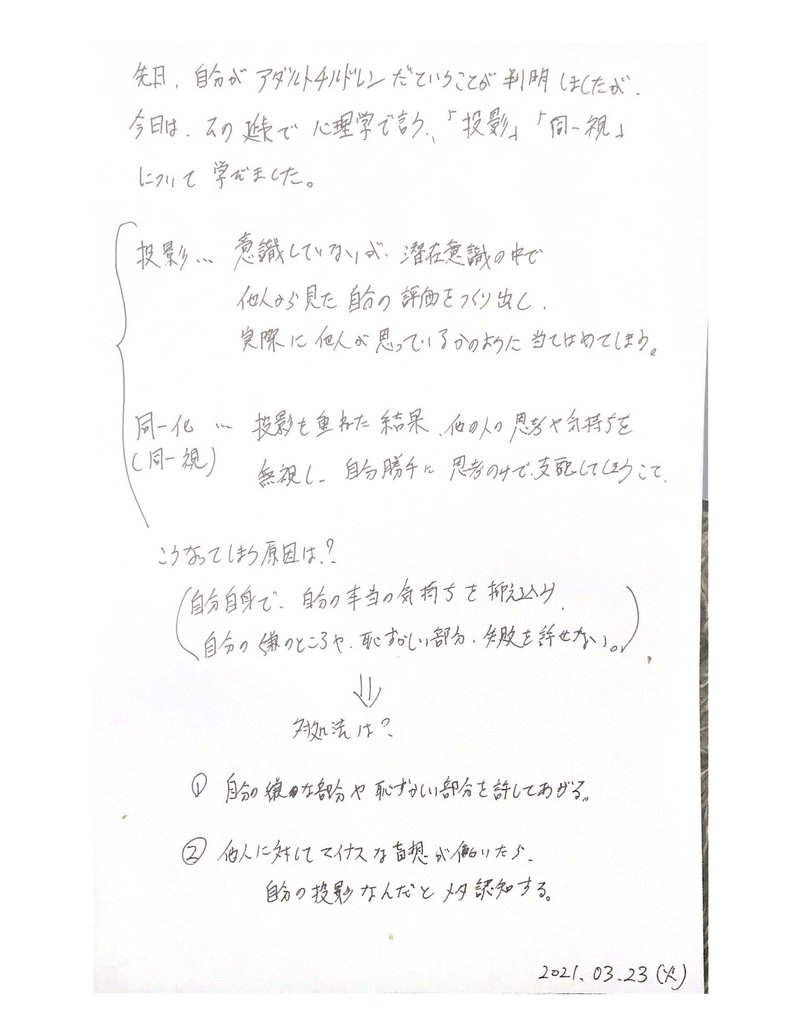 先日、自分が アダルトチルドレン だということが 判明しましたが、
今日は、その延長で 心理学で言う、「投影」「同一視」
について 学びました。
投影… 意識していないが、潜在意識の中で
他人から見た 自分の 評価をつくり出し、
実際に 他人が思っているかのように 当てはめてしまう。
同一化 … 投影を重ねた 結果、他の人の 思考や気持ちを
(同一視) 無視し、自分勝手に 思考の中で、支配してしまうこと、
こうなってしまう原因は?
自分自身で、自分の本当の気持ちを 抑え込み、
自分の 嫌のところや、恥ずかしい部分、失敗を許せない。
⇓
対処法は?
① 自分の嫌な部分や 恥ずかしい部分を許してあげる。
② 他人に対して マイナスな妄想が働いたら、
自分の投影なんだと メタ認知する。
2021.03.23(火)